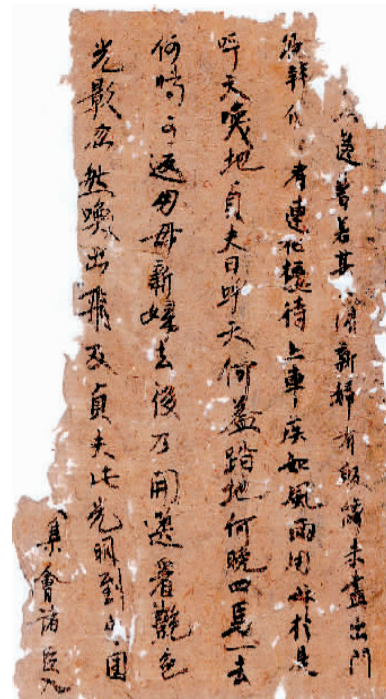 新婦有辞情未盡出門
有連花樓待上車疾如風雨用母於是
呼天喚地貞夫曰呼天何益踏地何晚四馬一去
何時可返用母新婦去後乃開還看艷色
光影忽然喚出飛及貞夫此光明到國
集會諸臣入